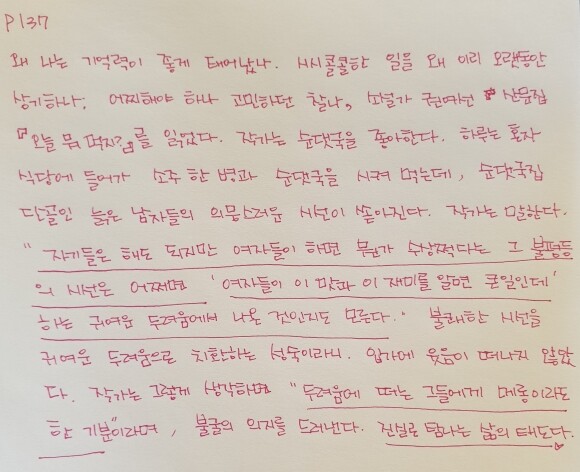 P137
왜 나는 기억력이 좋게 태어났나. 시시콜콜한 일을 왜 이리 오랫동안
상기하나. 어찌해야 하나 고민하던 찰나, 소설가 권여선 산문집
『오늘 뭐 먹지?』를 읽었다. 작가는 순댓국을 좋아한다. 하루는 혼자
식당에 들어가 소주 한 병과 순댓국을 시켜 먹는데, 순댓국집
단골인 늙은 남자들의 의뭉스러운 시선이 쏟아진다. 작가는 말한다.
"자기들은 해도 되지만 여자들이 하면 뭔가 수상쩍다는 그 불평등
의 시선은 어쩌면 '여자들이 이 맛과 이 재미를 알면 큰일인데'
하는 귀여운 두려움에서 나온 것인지도 모른다." 불쾌한 시선을
귀여운 두려움으로 치환하는 성숙이라니. 입가에 웃음이 떠나지 않았
다. 작가는 그렇게 생각하면 "두려움에 떠는 그들에게 메롱이라도
한 기분"이라며, 불굴의 의지를 드러낸다. 진실로 탐나는 삶의 태도다.